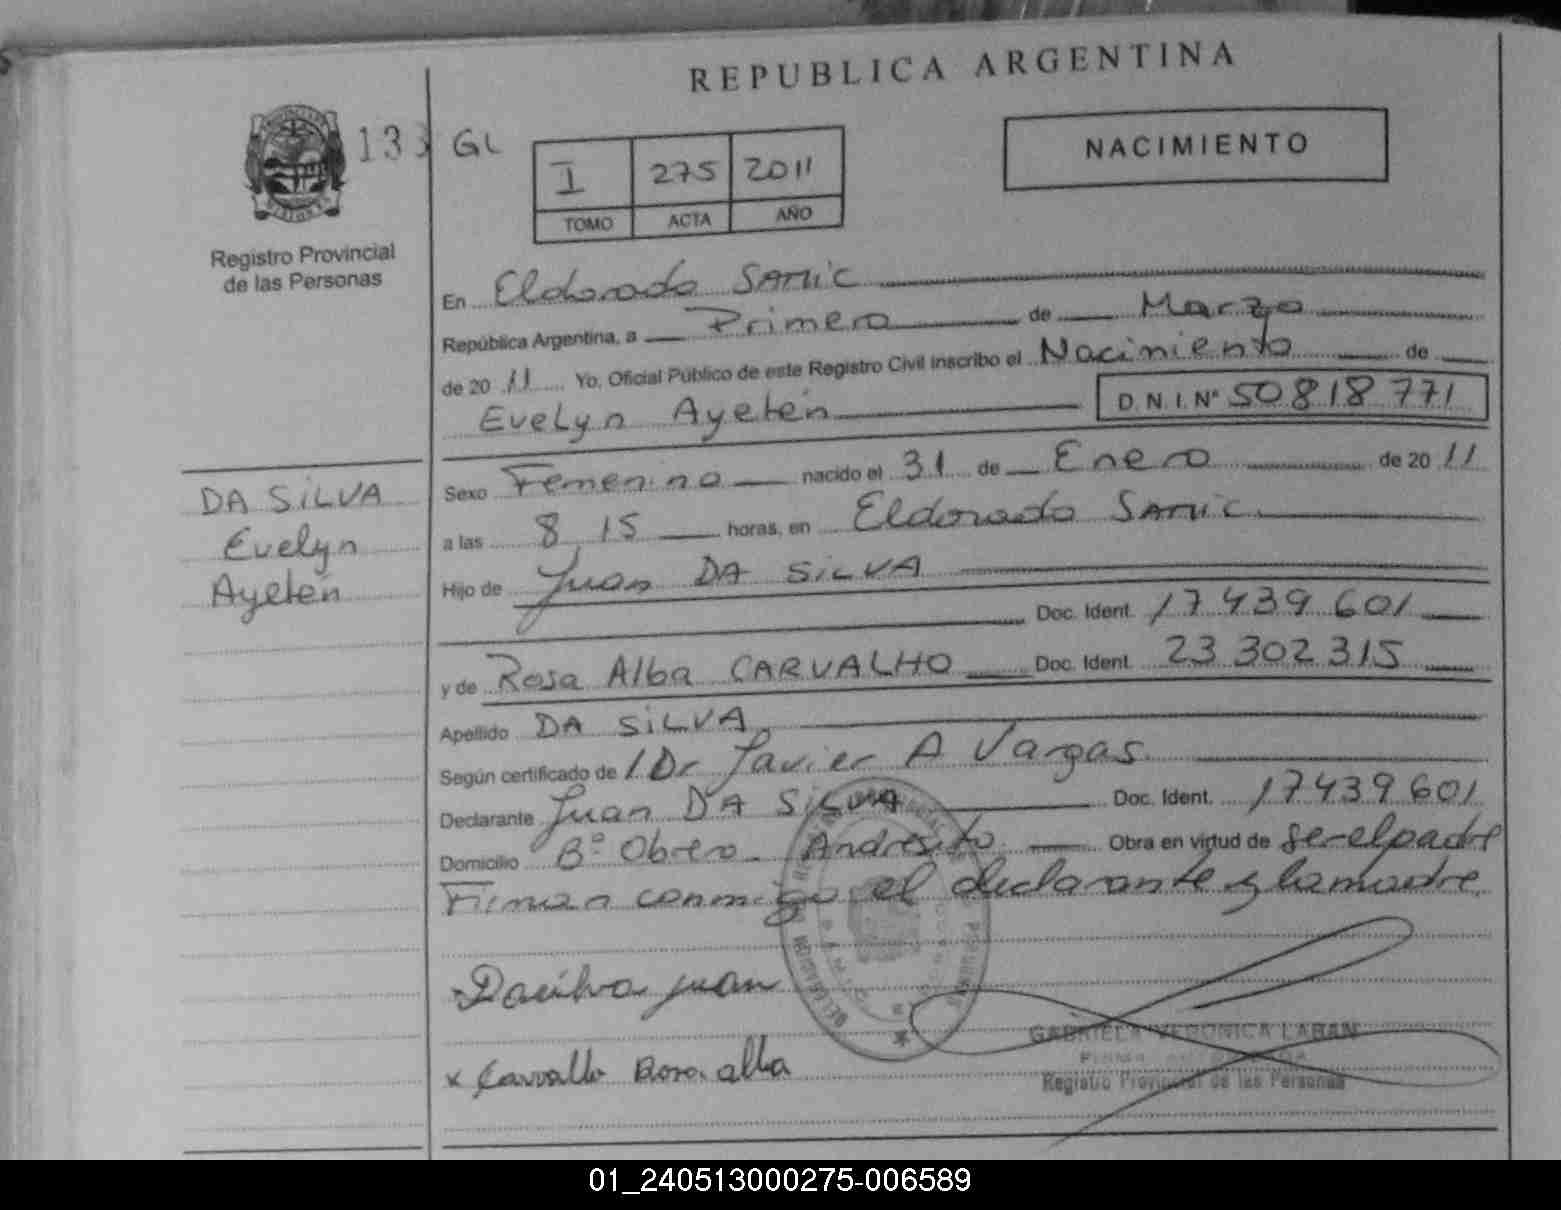 REPUBLICA ARGENTINA
133 GL
NACIMIENTO
I 275 2011
TOMO ACTA AÑO
Registro Provincial
de las Personas
En Eldorado SAMIC
República Argentina, a Primero de Marzo
de 20 11 Yo, Oficial Público de este Registro Civil inscribo el Nacimiento de
Evelyn Ayelén D.N.I. Nº 50818771
DA SiLVA
Evelyn
Ayelén
Sexo Femenino nacido el 31 de Enero de 20 11
a las 8 15 horas, en Eldorado SAMIC
Hijo de Juan DA SiLVA
Doc. Ident. 17439601
y de Rosa Alba CARVALHO Doc. Ident. 23302315
Apellido DA SiLVA
Según certificado de /Dr Javier A Vargas
Declarante Juan DA SiLVA Doc. Ident. 17439601
Domicilio Bº Obrero. Andresito Obra en virtud de ser el padre
Firman conmigo el declarante y la madre.
Dasilva juan
x Carvallo Rosa alba
GABRIELA VERONICA LABAN
Registro Provincial de las Personas
01_240513000275-006589